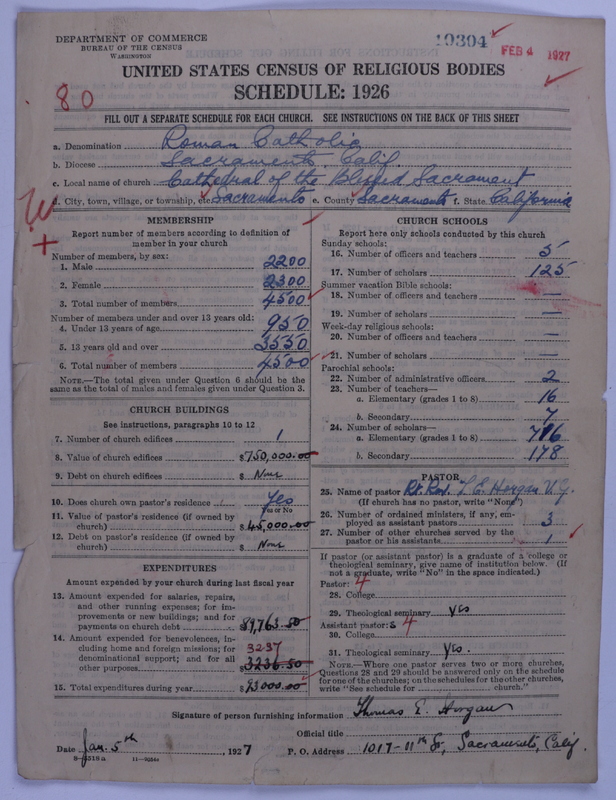 DEPARTMENT OF COMMERCE
BUREAU OF THE CENSUS
WASHINGTON
19304
FEB 4 1927
UNITED STATES CENSUS OF RELIGIOUS BODIES
SCHEDULE: 1926
80
FILL OUT A SEPARATE SCHEDULE FOR EACH CHURCH. SEE INSTRUCTIONS ON THE BACK OF THIS SHEET
a. Denomination Roman Catholic
b. Diocese Sacramento, Calif.
c. Local name of church Cathedral of the Blessed Sacrament
d. City, town, village, or township, etc. Sacramento e. County Sacramento f. State California
MEMBERSHIP
Report number of members according to definition of
member in your church
Number of members, by sex:
1. Male 2200
2. Female 2300
3. Total number of members 4500
Number of members under and over 13 years old:
4. Under 13 years of age 950
5. 13 years old and over 3550
6. Total number of members 4500
NOTE.—The total given under Question 6 should be the
same as the total of males and females given under Question 3.
CHURCH BUILDINGS
See instructions, paragraphs 10 to 12
7. Number of church edifices 1
8. Value of church edifices $750,000.00
9. Debt on church edifices $ None
10. Does church own pastor's residence Yes
Yes or No
11. Value of pastor's residence (if owned by
church) $45,000.00
12. Debt on pastor's residence (if owned by
church) $ None
EXPENDITURES
Amount expended by your church during last fiscal year
13. Amount expended for salaries, repairs,
and other running expenses; for im-
provements or new buildings; and for
payments on church debt $
14. Amount expended for benevolences, in-
cluding home and foreign missions; for
denominational support; and for all
other purposes 3237 $3236.50
15. Total expenditures during year $
CHURCH SCHOOLS
Report here only schools conducted by this church
Sunday schools:
16. Number of officers and teachers 5
17. Number of scholars 125
Summer vacation Bible schools:
18. Number of officers and teachers —
19. Number of scholars —
Week-day religious schools:
20. Number of officers and teachers —
21. Number of scholars —
Parochial schools:
22. Number of administrative officers 2
23. Number of teachers—
a. Elementary (grades 1 to 8) 16
b. Secondary 7
24. Number of scholars—
a. Elementary (grades 1 to 8) 716
b. Secondary 178
PASTOR
25. Name of pastor Rt. Rev. T. E. Horgan V.G.
(If church has no pastor, write "None")
26. Number of ordained ministers, if any, em-
ployed as assistant pastors 3
27. Number of other churches served by the
pastor or his assistants 1
If pastor (or assistant pastor) is a graduate of a college or
theological seminary, give name of institution below. (If
not a graduate, write "No" in the space indicated.)
Pastor: 4
28. College
29. Theological seminary yes
Assistant pastor: s 4
30. College
31. Theological seminary yes.
NOTE.—Where one pastor serves two or more churches,
Questions 28 and 29 should be answered only on the schedule
for one of the churches; on the schedules for the other churches,
write "See schedule for church."
Signature of person furnishing information Thomas E. Horgan
Official title
Date Jan. 5th, 1927 P. O. Address 1017-11th St., Sacramento, Calif.
8—5318a 11—9254